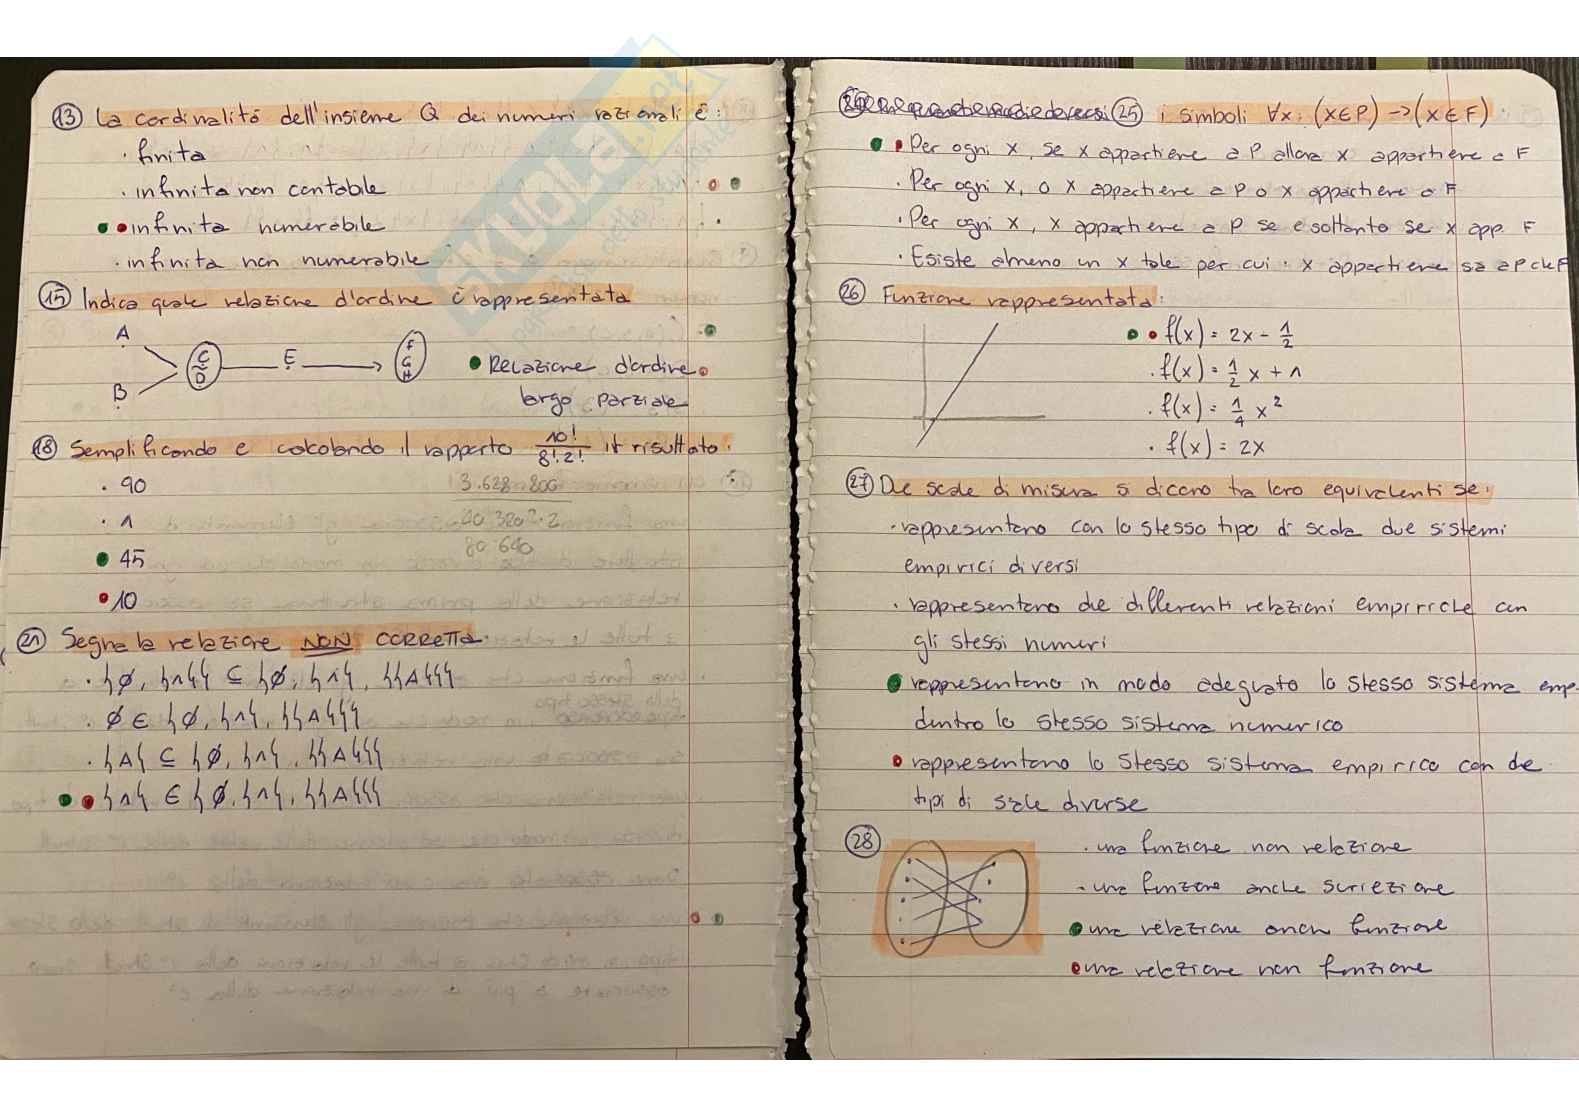 13 La cardinalità dell'insieme Q dei numeri razionali è:
· finita
· infinita non contabile
· infinita numerabile
· infinita non numerabile
15 Indica quale relazione d'ordine è rappresentata
A
B
C
D
E
F
G
H
· Relazione d'ordine
largo parziale
18 Semplificando e calcolando il rapporto 10!/8!2! il risultato:
· 90
· 1
· 45
· 10
3.628.800
40 320 · 2
80 640
21 Segna la relazione NON CORRETTA:
· {∅, {1}} ⊆ {∅, {1}, {{A}}}
· ∅ ∈ {∅, {1}, {{A}}}
· {A} ⊆ {∅, {1}, {{A}}}
· {1} ∈ {∅, {1}, {{A}}}
25 i simboli ∀x: (x∈P) → (x∈F)
· Per ogni x, se x appartiene a P allora x appartiene a F
· Per ogni x, o x appartiene a P o x appartiene a F
· Per ogni x, x appartiene a P se e soltanto se x app. F
· Esiste almeno un x tale per cui: x appartiene sa a P che F
26 Funzione rappresentata:
· f(x) = 2x - 1/2
· f(x) = 1/2 x + 1
· f(x) = 1/4 x²
· f(x) = 2x
27 Due scale di misura si dicono tra loro equivalenti se:
· rappresentano con lo stesso tipo di scala due sistemi
empirici diversi
· rappresentano due differenti relazioni empiriche con
gli stessi numeri
· rappresentano in modo adeguato lo stesso sistema emp.
dentro lo stesso sistema numerico
· rappresentano lo stesso sistema empirico con due
tipi di scale diverse
28
· una funzione non relazione
· una funzione anche suriezione
· una relazione anche funzione
· una relazione non funzione
SKUOLA.net